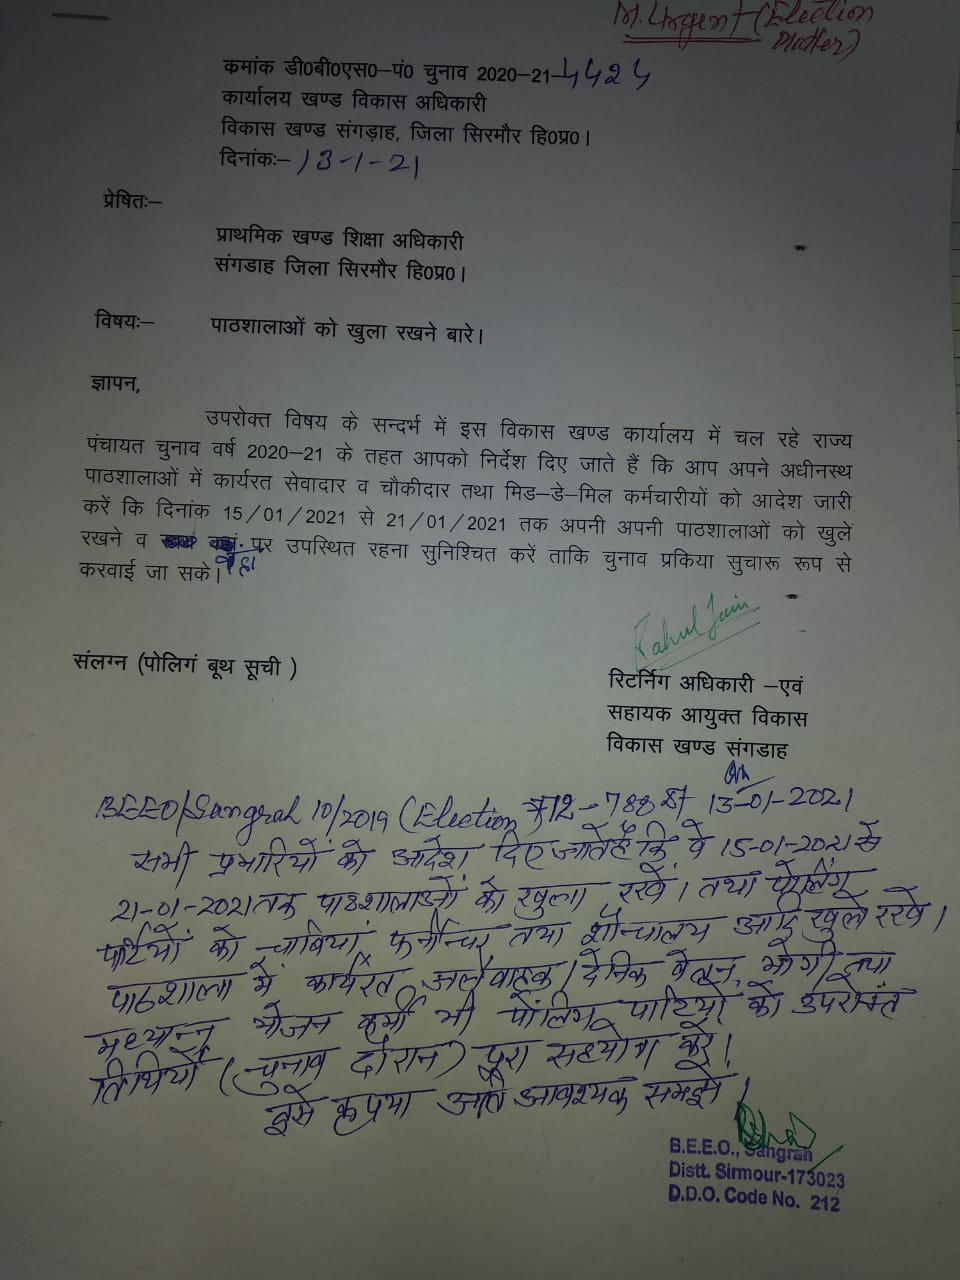 M. Urgent (Election
Matter)
कमांक डी0बी0एस0–पं0 चुनाव 2020–21–4424
कार्यालय खण्ड विकास अधिकारी
विकास खण्ड संगड़ाह, जिला सिरमौर हि0प्र0।
दिनांकः– 13-1-21
प्रेषितः–
प्राथमिक खण्ड शिक्षा अधिकारी
संगडाह जिला सिरमौर हि0प्र0।
विषयः– पाठशालाओं को खुला रखने बारे।
ज्ञापन,
उपरोक्त विषय के सन्दर्भ में इस विकास खण्ड कार्यालय में चल रहे राज्य
पंचायत चुनाव वर्ष 2020–21 के तहत आपको निर्देश दिए जाते हैं कि आप अपने अधीनस्थ
पाठशालाओं में कार्यरत सेवादार व चौकीदार तथा मिड–डे–मिल कर्मचारीयों को आदेश जारी
करें कि दिनांक 15/01/2021 से 21/01/2021 तक अपनी अपनी पाठशालाओं को खुले
रखने व वहां पर उपस्थित रहना सुनिश्चित करें ताकि चुनाव प्रकिया सुचारू रूप से
करवाई जा सके।
Rahul Jain
संलग्न (पोलिगं बूथ सूची )
रिटर्निग अधिकारी –एवं
सहायक आयुक्त विकास
विकास खण्ड संगडाह
BEEO/Sangrah 10/2019 (Election) 712-788 13-01-2021
सभी प्रभारियों को आदेश दिए जाते हैं कि वे 15-01-2021 से
21-01-2021 तक पाठशालाओं को खुला रखें। तथा पोलिंग
पार्टियों को चाबियां, फर्नीचर तथा शौचालय आदि खुले रखें।
पाठशाला में कार्यरत जलवाहक/दैनिक वेतन भोगी तथा
मध्यान्न भोजन कर्मी भी पोलिंग पार्टियों को उपरोक्त
तिथियों (चुनाव दौरान) पूरा सहयोग करें।
इसे कृपया अति आवश्यक समझें।
B.E.E.O., Sangrah
Distt. Sirmour-173023
D.D.O. Code No. 212